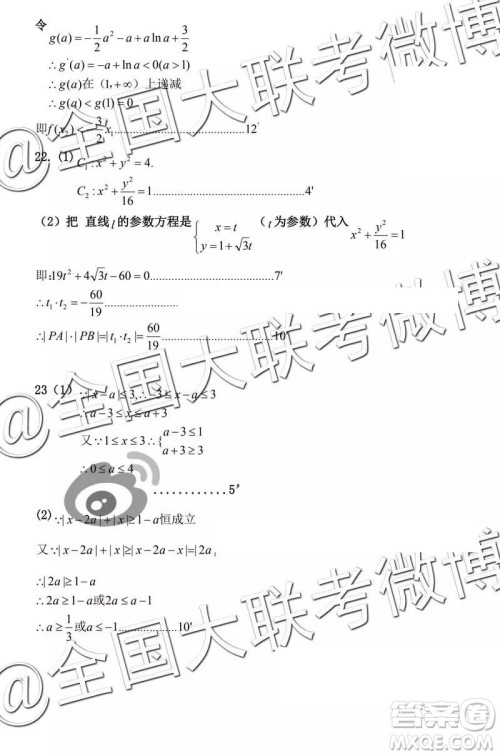 令
g(a)=-1/2a²-a+a ln a+3/2
∴g'(a)=-a+ln a<0(a>1)
∴g(a)在（1,+∞）上递减
∴g(a)<g(1)=0
即f(x₂)<-3/2x₁.....................12'
22.（1） C₁:x²+y²=4.
C₂:x²+y²/16=1.....................4'
（2）把 直线l的参数方程是{x=t y=1+√3t （t为参数）代入 x²+y²/16=1
即:19t²+4√3t-60=0.....................7'
∴t₁·t₂=-60/19
∴|PA|·|PB|=|t₁·t₂|=60/19.....................10'
23（1）∵|x-a|≤3,∴-3≤x-a≤3
∴a-3≤x≤a+3
又∵1≤x≤3∴{a-3≤1 a+3≥3
∴0≤a≤4
............5'
(2)∵|x-2a|+|x|≥1-a恒成立
又∵|x-2a|+|x|≥|x-2a-x|=|2a|,
∴|2a|≥1-a
∴2a≥1-a或2a≤a-1
∴a≥1/3或a≤-1.....................10'
@全国大联考微博
@全国大联考微博
@全国大联考微博
答案圈
MXQE.COM